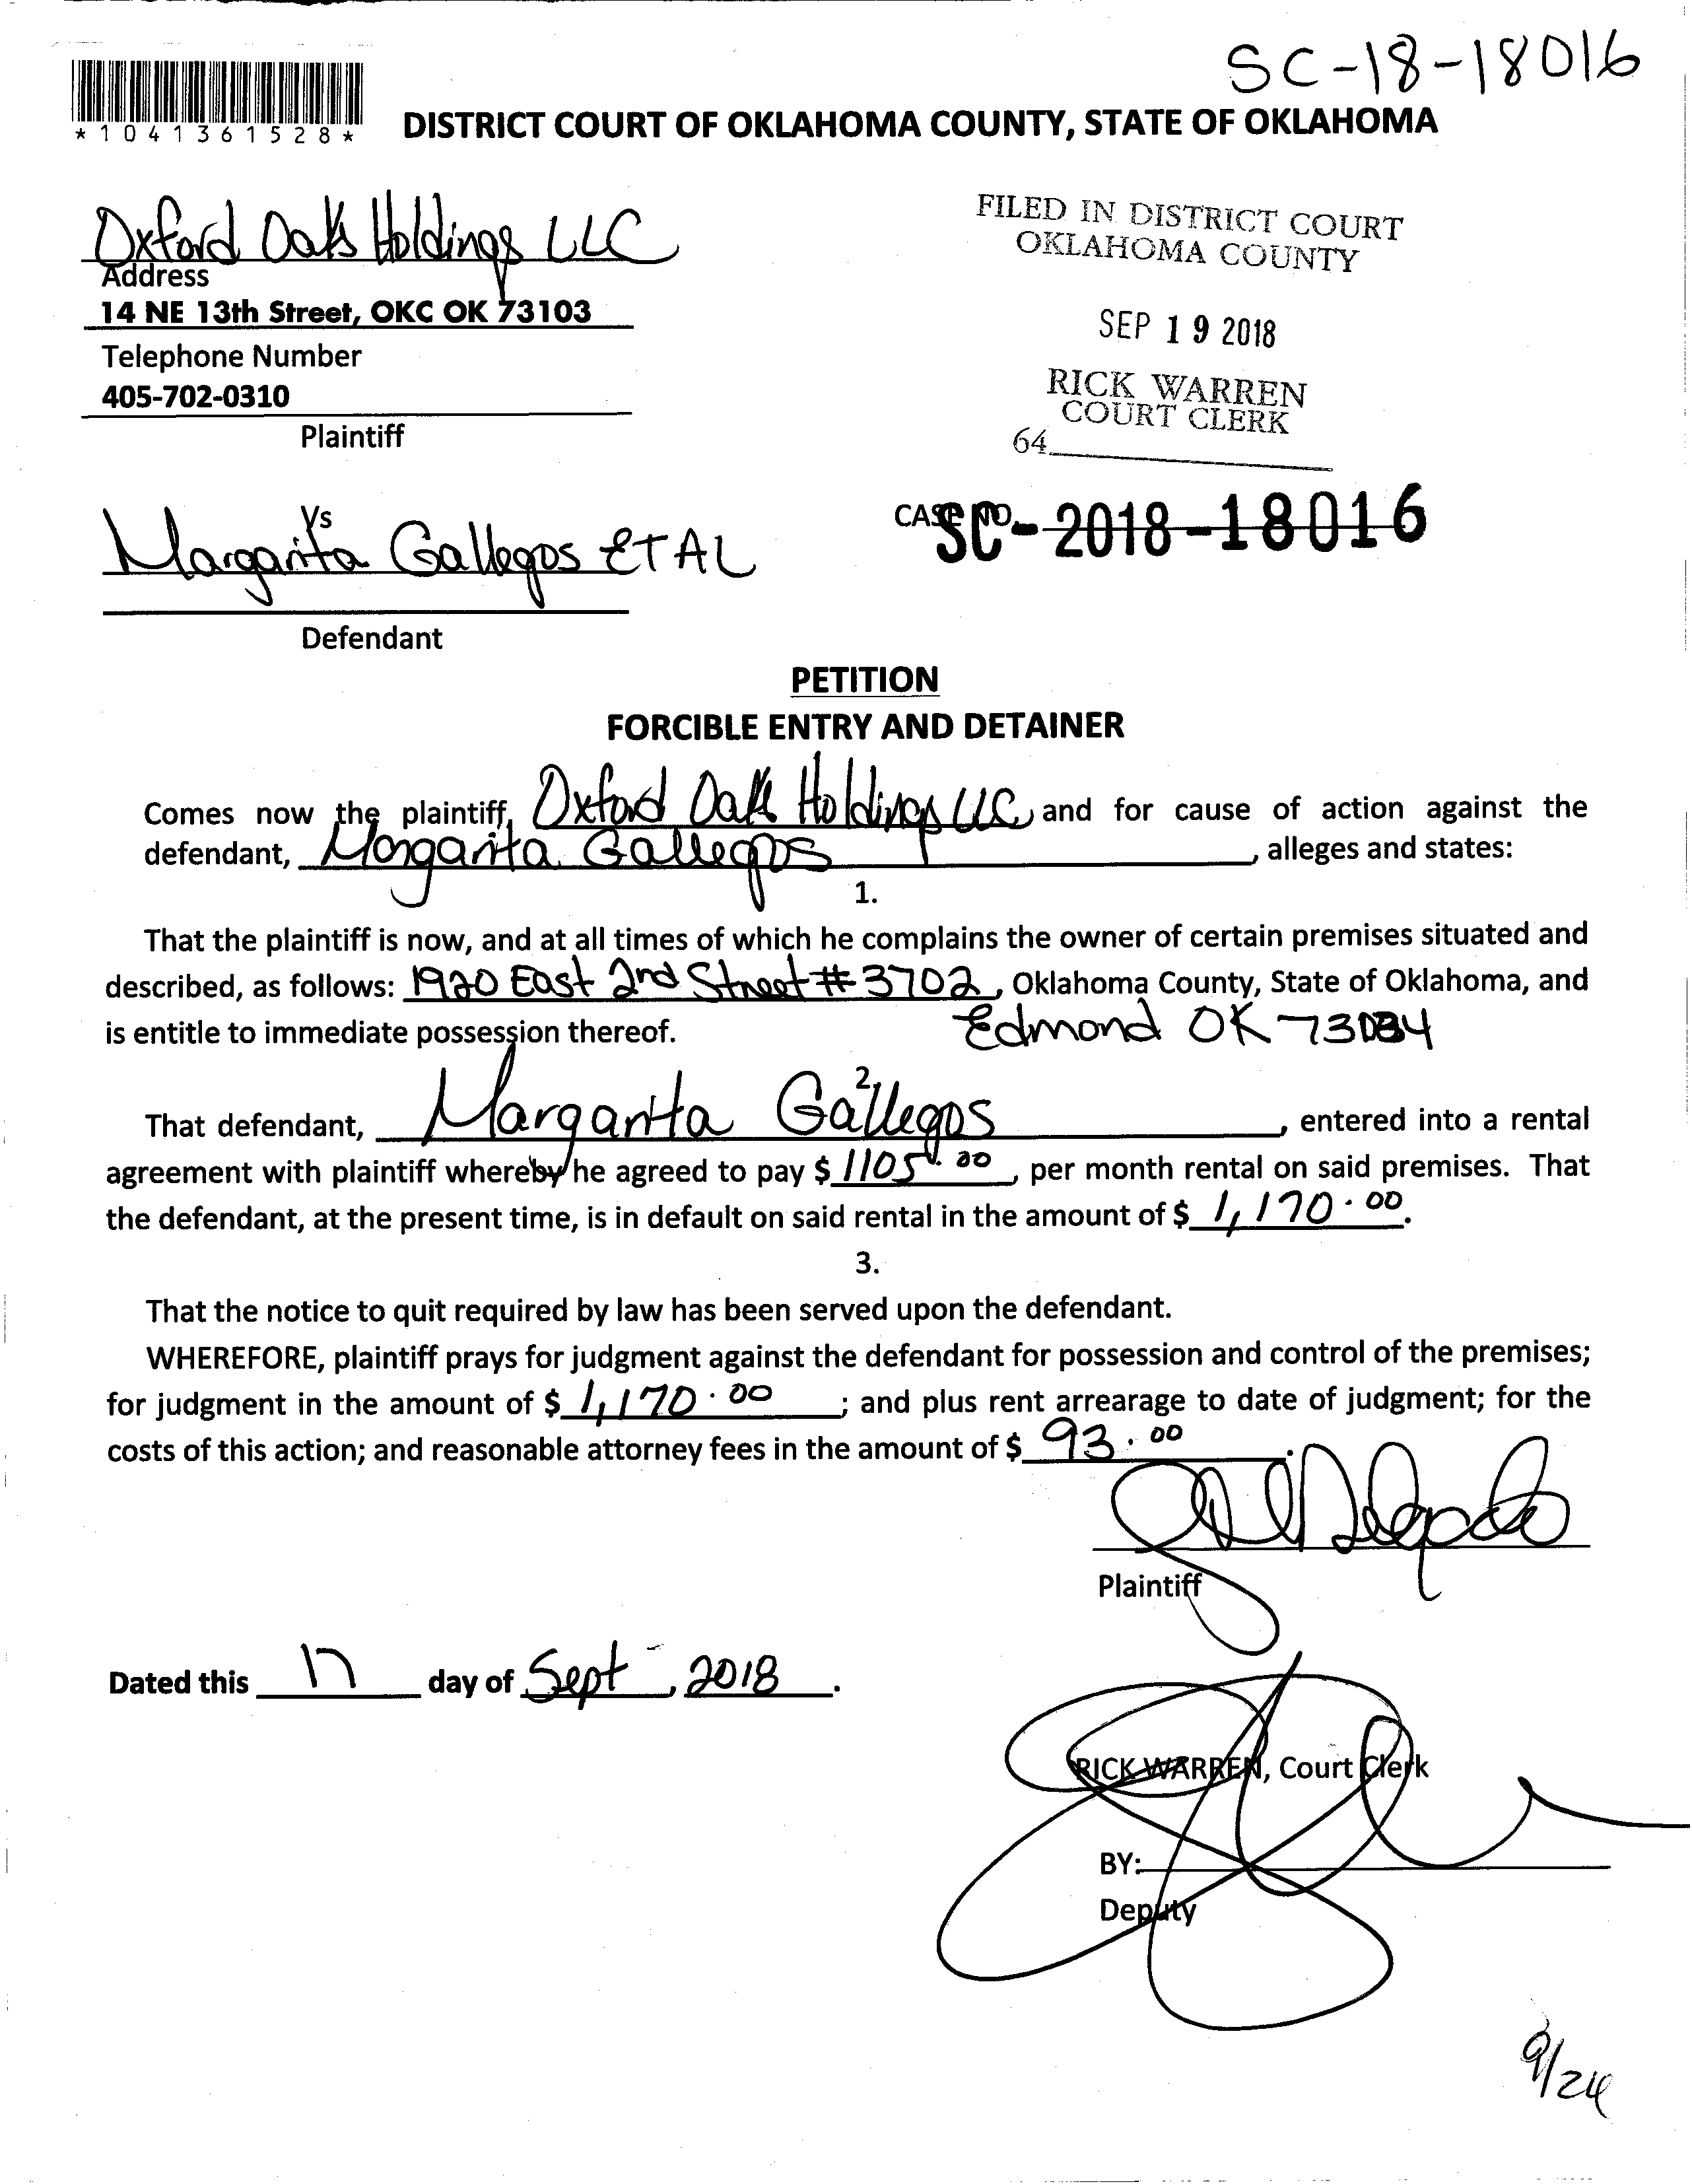 SC-18-18016
*1041361528*
DISTRICT COURT OF OKLAHOMA COUNTY, STATE OF OKLAHOMA
Oxford Oaks Holdings LLC
Address
14 NE 13th Street, OKC OK 73103
Telephone Number
405-702-0310
Plaintiff
FILED IN DISTRICT COURT
OKLAHOMA COUNTY
SEP 19 2018
RICK WARREN
COURT CLERK
64
Vs
Margarita Gallegos ET AL
Defendant
CASE NO. SC-2018-18016
PETITION
FORCIBLE ENTRY AND DETAINER
Comes now the plaintiff, Oxford Oaks Holdings LLC, and for cause of action against the
defendant, Margarita Gallegos, alleges and states:
1.
That the plaintiff is now, and at all times of which he complains the owner of certain premises situated and
described, as follows: 1920 East 2nd Street # 3702, Oklahoma County, State of Oklahoma, and
is entitle to immediate possession thereof. Edmond OK 73034
2.
That defendant, Margarita Gallegos, entered into a rental
agreement with plaintiff whereby he agreed to pay $ 1105.00, per month rental on said premises. That
the defendant, at the present time, is in default on said rental in the amount of $ 1,170.00.
3.
That the notice to quit required by law has been served upon the defendant.
WHEREFORE, plaintiff prays for judgment against the defendant for possession and control of the premises;
for judgment in the amount of $ 1,170.00; and plus rent arrearage to date of judgment; for the
costs of this action; and reasonable attorney fees in the amount of $ 93.00.
Plaintiff
Dated this 17 day of Sept, 2018.
RICK WARREN, Court Clerk
BY:
Deputy
9/24